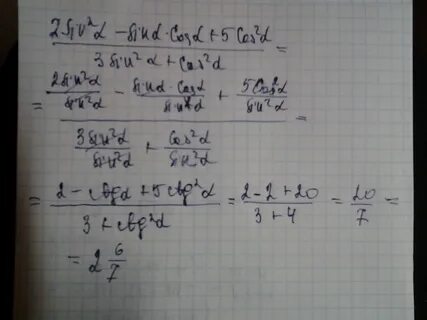 (2sin²α - sinα·cosα + 5cos²α)/(3sin²α + cos²α) =
= (2sin²α/sin²α - sinα·cosα/sin²α + 5cos²α/sin²α)/(3sin²α/sin²α + cos²α/sin²α) =
= (2 - ctgα + 5ctg²α)/(3 + ctg²α) = (2 - 2 + 20)/(3 + 4) = 20/7 =
= 2 6/7